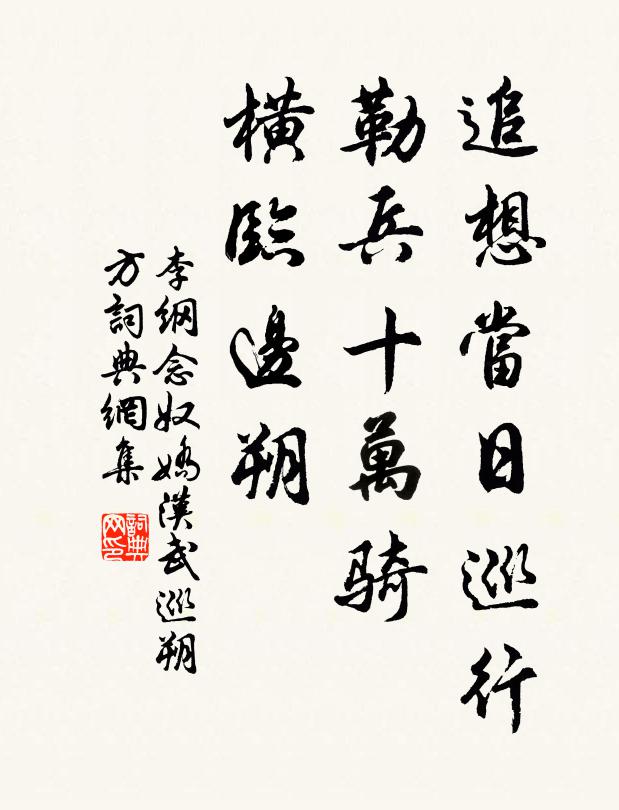 追想當日巡行
勒兵十萬騎
橫臨邊朔
李綱念奴嬌漢武巡朔
方詞典網集
詞典
网印